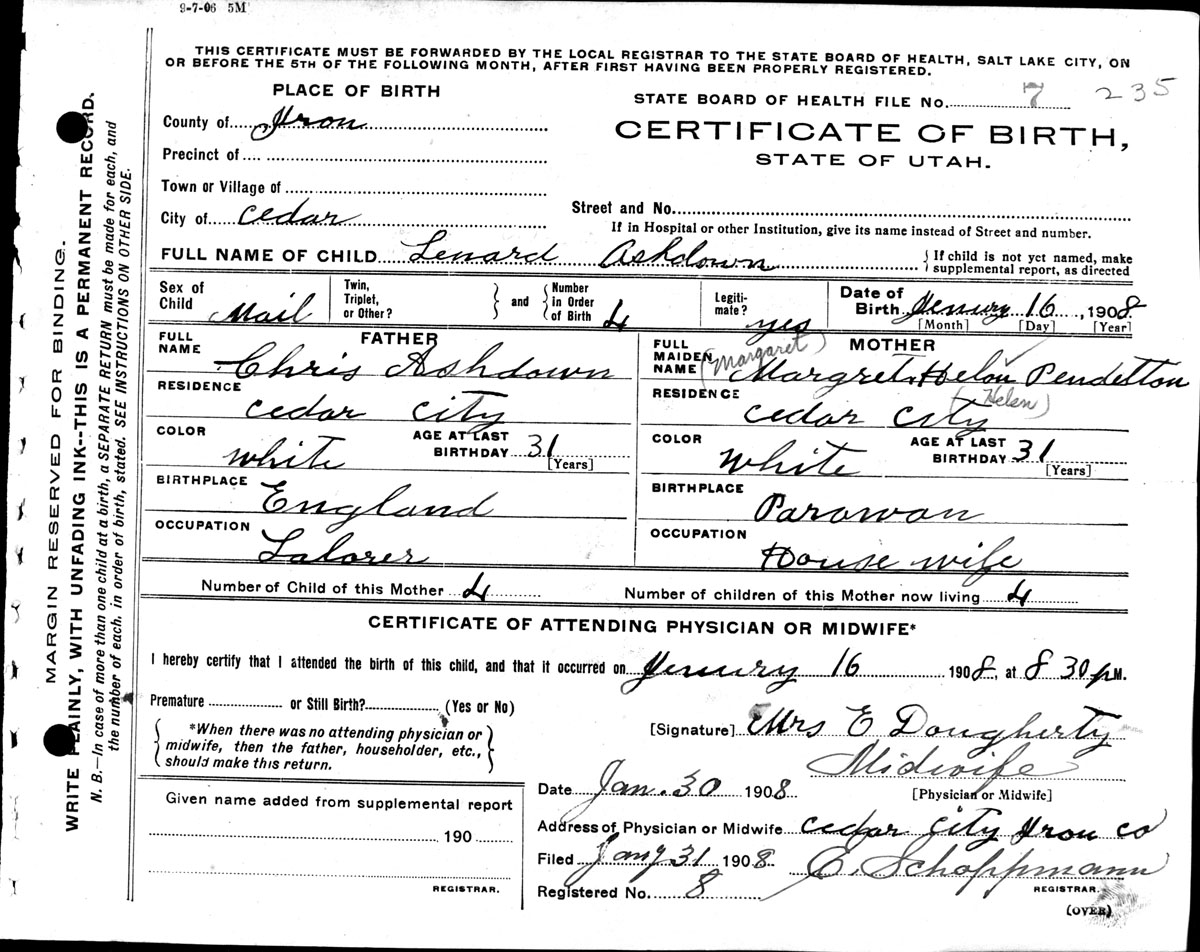 9-7-06 5M
THIS CERTIFICATE MUST BE FORWARDED BY THE LOCAL REGISTRAR TO THE STATE BOARD OF HEALTH, SALT LAKE CITY, ON
OR BEFORE THE 5TH OF THE FOLLOWING MONTH, AFTER FIRST HAVING BEEN PROPERLY REGISTERED.
PLACE OF BIRTH
STATE BOARD OF HEALTH FILE No. 7 235
County of Iron
CERTIFICATE OF BIRTH,
STATE OF UTAH.
Precinct of
Town or Village of
City of Cedar
Street and No.
If in Hospital or other Institution, give its name instead of Street and number.
FULL NAME OF CHILD Lenard Ashdown
{ If child is not yet named, make
supplemental report, as directed
Sex of Child Mail
Twin, Triplet, or Other? } and { Number in Order of Birth 4
Legitimate? yes
Date of Birth Jenury 16, 1908
[Month] [Day] [Year]
FATHER
FULL NAME Chris Ashdown
RESIDENCE Cedar City
COLOR White
AGE AT LAST BIRTHDAY 31
[Years]
BIRTHPLACE England
OCCUPATION Laborer
MOTHER
(Margaret)
FULL MAIDEN NAME Margret Helon Pendelton
(Helen)
RESIDENCE Cedar City
COLOR White
AGE AT LAST BIRTHDAY 31
[Years]
BIRTHPLACE Parowan
OCCUPATION House wife
Number of Child of this Mother 4
Number of children of this Mother now living 4
CERTIFICATE OF ATTENDING PHYSICIAN OR MIDWIFE*
I hereby certify that I attended the birth of this child, and that it occurred on Jenury 16 1908, at 8 30 p M.
Premature or Still Birth? (Yes or No)
{ *When there was no attending physician or
midwife, then the father, householder, etc.,
should make this return. }
[Signature] Mrs E Dougherty
Midwife
[Physician or Midwife]
Date Jan. 30 1908
Address of Physician or Midwife Cedar City Iron Co
Filed Jany 31 1908 E. Schoppmann
REGISTRAR.
Registered No. 8
(OVER)
Given name added from supplemental report
190
REGISTRAR.
MARGIN RESERVED FOR BINDING.
WRITE PLAINLY, WITH UNFADING INK--THIS IS A PERMANENT RECORD.
N. B.—In case of more than one child at a birth, a SEPARATE RETURN must be made for each, and
the number of each, in order of birth, stated. SEE INSTRUCTIONS ON OTHER SIDE.